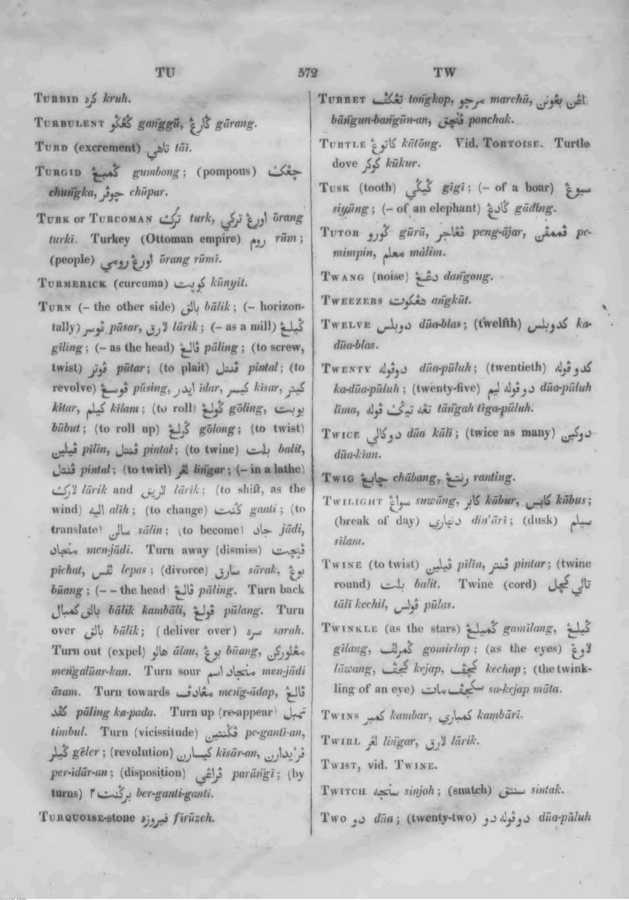 TU 572 TW
TURBID كره kruh.
TURBULENT ڠڠڬو gang̃gū, ڬارڠ gārang.
TURD (excrement) تاهي tāi.
TURGID ڬمبڠ gumbong; (pompous) چڠك
chung̃ka, چوڤر chūpar.
TURK or TURCOMAN ترك turk, اورڠ تركي ōrang
turki. Turkey (Ottoman empire) روم rūm;
(people) اورڠ رومي ōrang rūmi.
TURMERICK (curcuma) كوپت kūnyit.
TURN (– the other side) بالق bālik; (– horizon-
tally) ڤوسر pūsar, لارق lārik; (– as a mill) ڬيلڠ
gīling; (– as the head) ڤالڠ pāling; (to screw,
twist) ڤوتر pūtar; (to plait) ڤنتل pintal; (to
revolve) ڤوسڠ pūsing, ايدر idar, كيسر kisar, كيتر
kitar, كيلم kilam; (to roll) ڬولڠ gōling, بوبت
būbut; (to roll up) ڬولڠ gōlong; (to twist)
ڤيلين pīlin, ڤنتل pintal; (to twine) بلت balit,
ڤنتل pintal; (to twirl) لڠر ling̃ar; (– in a lathe)
لارك lārik and لاريق lārik; (to shift, as the
wind) اليه alih; (to change) ڬنت ganti; (to
translate) سالن sālin; (to become) جاد jādi,
منجاد men-jādi. Turn away (dismiss) ڤيچت
pichat, لڤس lepas; (divorce) سارق sārak, بوڠ
būang; (– – the head ڤالڠ pāling. Turn back
بالق كمبال bālik kambāli, ڤولڠ pūlang. Turn
over بالق bālik; (deliver over) سره sarah.
Turn out (expel) هالو ālau, بوڠ būang, مڠلوركن
meng̃alūar-kan. Turn sour منجاد اسم men-jādi
āsam. Turn towards مڠادڤ meng̃-ādap, ڤالڠ
كڤد pāling ka-pada. Turn up (re-appear) تمبل
timbul. Turn (vicissitude) ڤڬنتين pe-ganti-an,
ڬيلر gēler; (revolution) كيسارن kisār-an, ڤريدارن
per-idār-an; (disposition) ڤراڠي parāng̃i; (by
turns) برڬنت٢ ber-ganti-ganti.
TURQUOISE-stone فيروزه firūzeh.
TURRET تڠكڤ tong̃kop, مرچو marchū, باڠن بڠونن
bāng̃un-bang̃ūn-an, ڤنچق panchak.
TURTLE كاتوڠ kātōng. Vid. TORTOISE. Turtle
dove كوكر kūkur.
TUSK (tooth) ڬيڬي gigi; (– of a boar) سيوڠ
siyūng; (– of an elephant) ڬادڠ gāding.
TUTOR ڬورو gūrū, ڤڠاجر peng-ājar, ڤممڤن pe-
mimpin, معلم mālim.
TWANG (noise) دڠڠ dang̃ong.
TWEEZERS اڠكوت ang̃kūt.
TWELVE دوبلس dūa-blas; (twelfth) كدوبلس ka-
dūa-blas.
TWENTY دوڤوله dūa-pūluh; (twentieth) كدوڤوله
ka-dūa-pūluh; (twenty-five) دوڤوله ليم dūa-pūluh
līma, تڠه تيڬ ڤوله tāng̃ah tīga-pūluh.
TWICE دوكالي dūa kāli; (twice as many) دوكين
dūa-kīan.
TWIG چابڠ chābang, رنتڠ ranting.
TWILIGHT سواڠ suwāng, كابر kābur, كابس kābus;
(break of day) دنهاري din'āri; (dusk) سيلم
sīlam.
TWINE (to twist) ڤيلين pīlin, ڤنتر pintar; (twine
round) بلت balit. Twine (cord) تالي كچل
tāli kechil, ڤولس pūlas.
TWINKLE (as the stars) ڬميلڠ gamīlang, ڬيلڠ
gīlang, ڬمرلڤ gomirlap; (as the eyes) لاوڠ
lāwang, كجڤ kejap, كچڤ kechap; (the twink-
ling of an eye) سكجڤ مات sa-kejap māta.
TWINS كمبر kambar, كمباري kambāri.
TWIRL لڠر ling̃ar, لارق lārik.
TWIST, vid. TWINE.
TWITCH سنجه sinjoh; (snatch) سنتق sintak.
TWO دو dūa; (twenty-two) دوڤوله دو dūa-pūluh